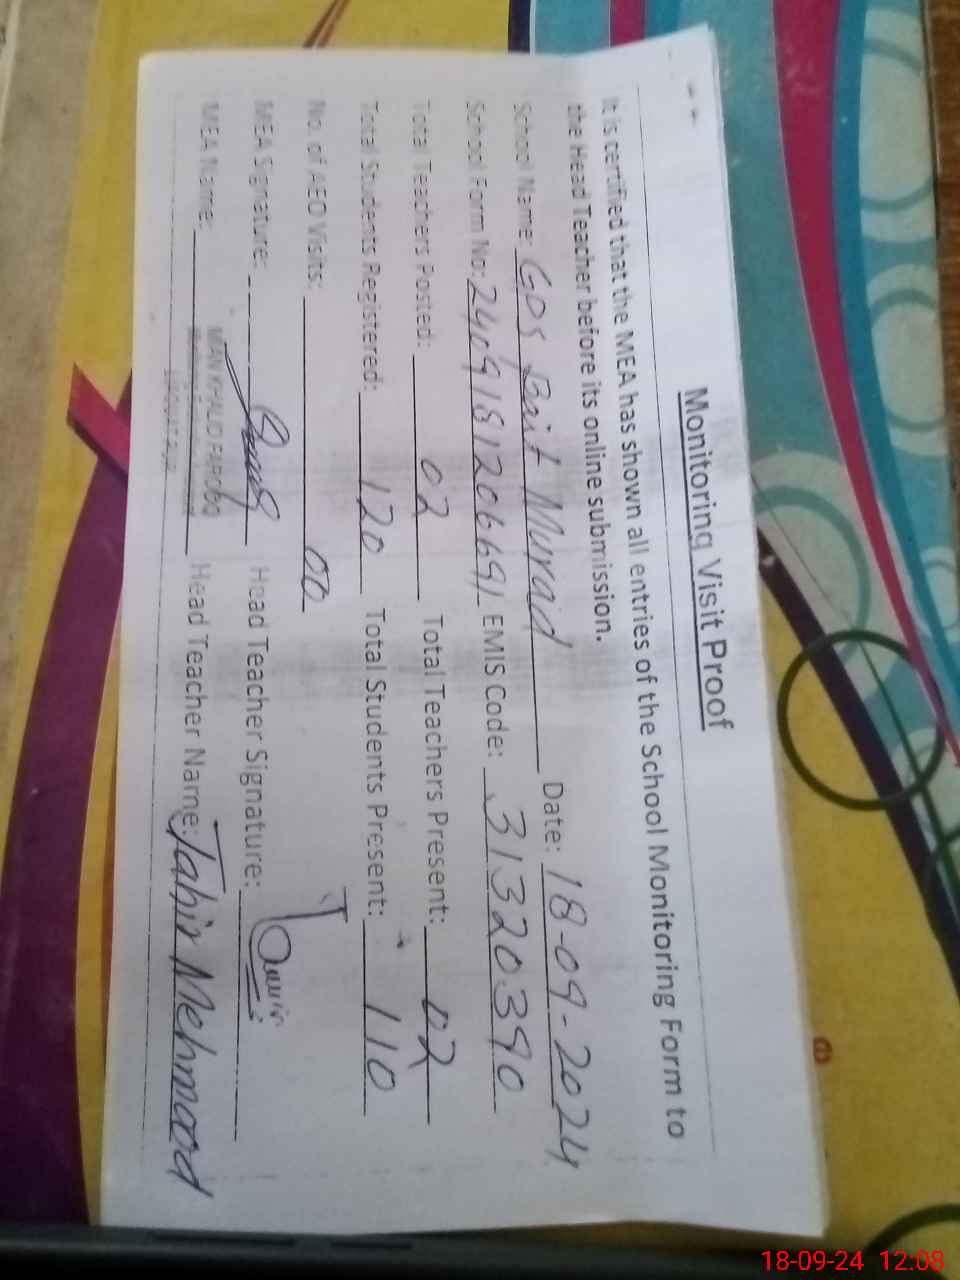 Monitoring Visit Proof
It is certified that the MEA has shown all entries of the School Monitoring Form to
the Head Teacher before its online submission.
School Name: GPS Bait Murad Date: 18-09-2024
School Form No: EMIS Code: 31320390
Total Teachers Posted: 02 Total Teachers Present: 02
Total Students Registered: 120 Total Students Present: 110
No. of AEO Visits: 00
MEA Signature: Head Teacher Signature:
MEA Name: MIAN KHALID FAROOQ Head Teacher Name: Tahir Mehmood
18-09-24 12:08